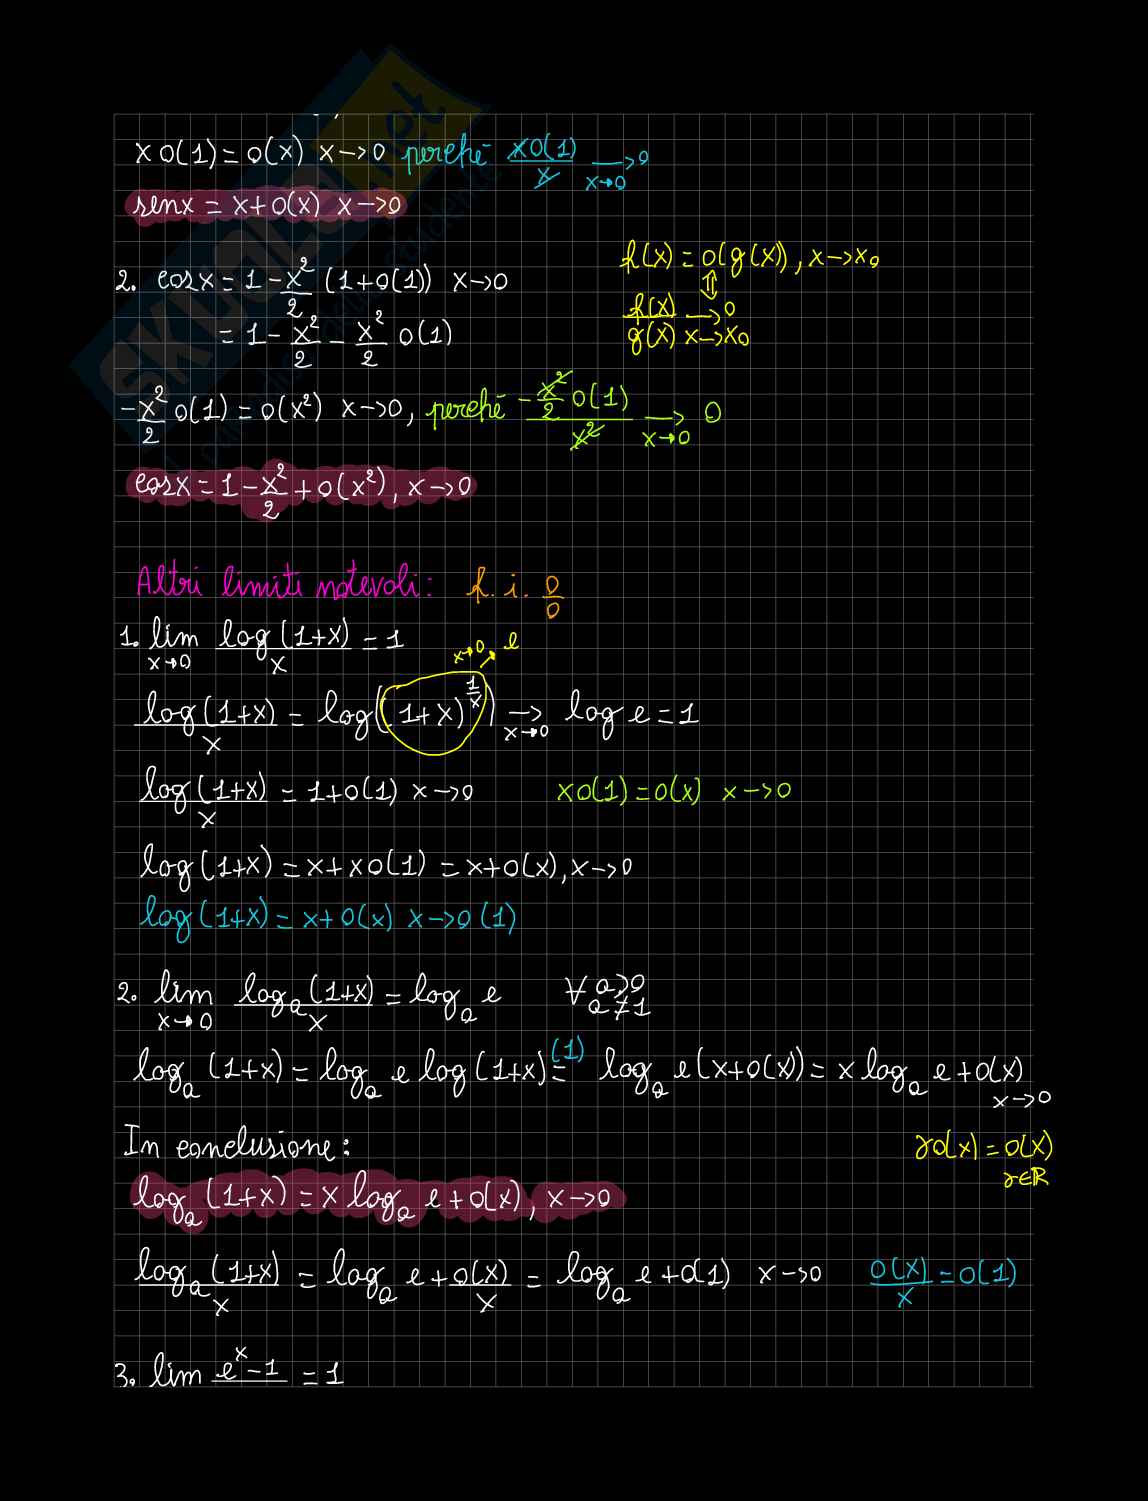 x o(1) = o(x) x→0 perché x o(1)/x →_{x→0} 0
sen x = x + o(x) x→0
f(x) = o(g(x)), x→x₀
⇕
f(x)/g(x) →_{x→x₀} 0
2. cos x = 1 - x²/2 (1+o(1)) x→0
= 1 - x²/2 - x²/2 o(1)
-x²/2 o(1) = o(x²) x→0, perché (-x²/2 o(1))/x² →_{x→0} 0
cos x = 1 - x²/2 + o(x²), x→0
Altri limiti notevoli: f.i. 0/0
1. lim_{x→0} log(1+x)/x = 1
x→0 e
log(1+x)/x = log((1+x)^{1/x}) →_{x→0} log e = 1
log(1+x)/x = 1+o(1) x→0 x o(1) = o(x) x→0
log(1+x) = x + x o(1) = x + o(x), x→0
log(1+x) = x + o(x) x→0 (1)
2. lim_{x→0} log_a(1+x)/x = log_a e ∀ a>0 a≠1
log_a(1+x) = log_a e log(1+x) =^{(1)} log_a e (x+o(x)) = x log_a e + o(x) x→0
In conclusione:
γo(x) = o(x) γ∈ℝ
log_a(1+x) = x log_a e + o(x), x→0
log_a(1+x)/x = log_a e + o(x)/x = log_a e + o(1) x→0 o(x)/x = o(1)
3. lim e^x - 1 = 1